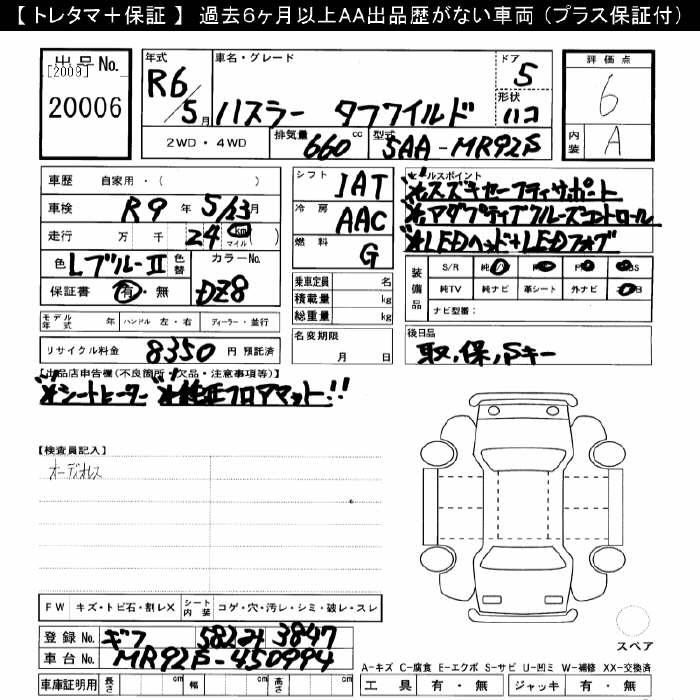 【 トレタマ＋保証 】 過去6ヶ月以上AA出品歴がない車両（プラス保証付）
出品No.
[2009]
20006
年式
R6/5月
車名・グレード
ハスラー タフワイルド
ドア
5
形状
ハコ
評価点
6
内装
A
2WD・4WD
排気量
660 cc
型式
5AA-MR92S
車歴 自家用・( )
車検 R9 年 5/23月
走行 万 千 24 km マイル ( )
色 Lブルー-Ⅱ 色替
カラーNo.
DZ8
保証書 有・無
シフト IAT
冷房 AAC
燃料 G
乗車定員 名
積載量 kg
総重量 kg
セールスポイント
※スズキセーフティサポート
※アダプティブクルーズコントロール
※LEDヘッド+LEDフォグ
装備品
S/R
純TV 純ナビ 革シート 外ナビ
ナビ型番:
モデル年式 年 ハンドル 左・右 ディーラー・並行
名変期限 月 日
後日品
取,保,Sキー
リサイクル料金 8350 円 預託済
【出品店申告欄(不良箇所・欠品・注意事項等)】
※シートヒーター ※純正フロアマット!!
【検査員記入】
オーディオレス
FW キズ・トビ石・割レX
シート内装 コゲ・穴・汚レ・シミ・破レ・スレ
登録No. ギフ 582み 3847
車台No. MR92S-450994
車庫証明用 長さ cm 幅 cm 高さ cm
スペア
A-キズ C-腐食 E-エクボ S-サビ U-凹ミ W-補修 XX-交換済
工具 有・無 ジャッキ 有・無